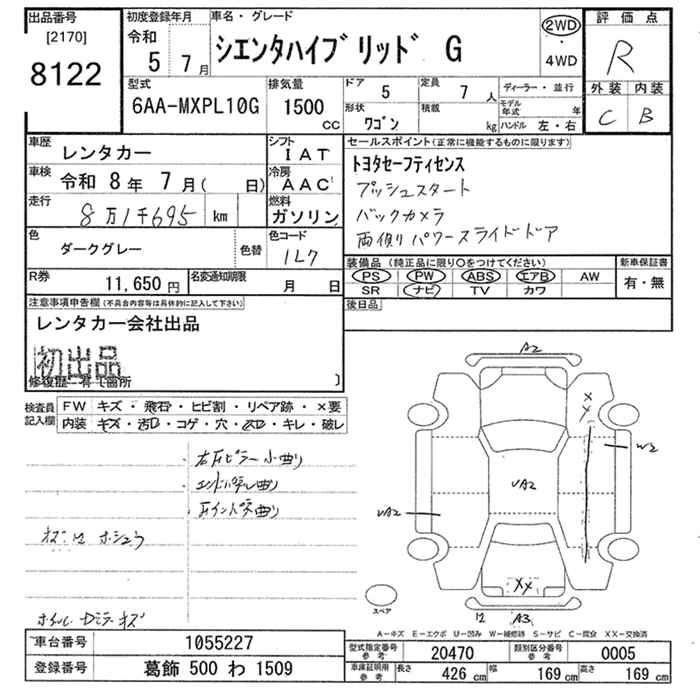 出品番号
[2170]
8122
初度登録年月
令和
5 7月
車名・グレード
シエンタハイブリッド G
2WD
・
4WD
評価点
R
外装 内装
C B
型式
6AA-MXPL10G
排気量
1500
cc
ドア 5
定員 7 人
形状 ワゴン
積載 kg
ディーラー・並行
モデル年式 年
ハンドル 左・右
車歴 レンタカー
シフト IAT
車検 令和 8年 7月( 日)
冷房 AAC
走行 8万1千695 km
燃料 ガソリン
色 ダークグレー 色替
色コード 1L7
R券 11,650円
名変通知期限 月 日
セールスポイント(正常に機能するものに限ります)
トヨタセーフティセンス
プッシュスタート
バックカメラ
両側パワースライドドア
装備品(純正品に限り○をつけてください)
PS PW ABS エアB AW
SR ナビ TV カワ
新車保証書
有・無
後日品
注意事項申告欄(不具合内容等は具体的に記入して下さい)
レンタカー会社出品
初出品
修復歴 有 箇所
検査員記入欄
FW キズ・飛石・ヒビ割・リペア跡・×要
内装 キズ・汚レ・コゲ・穴・スレ・キレ・破レ
右Fピラー小曲り
エンドパネル曲り
Fインパネ曲り
ホイルキズ
A2
X
X
W2
UA2
UA2
XX
12
A3
スペア
A-キズ E-エクボ U-凹み W-補修跡 S-サビ C-腐食 XX-交換済
車台番号 1055227
登録番号 葛飾 500 わ 1509
型式指定番号 参考 20470
類別区分番号 参考 0005
車庫証明用 参考
長さ 426 cm
幅 169 cm
高さ 169 cm